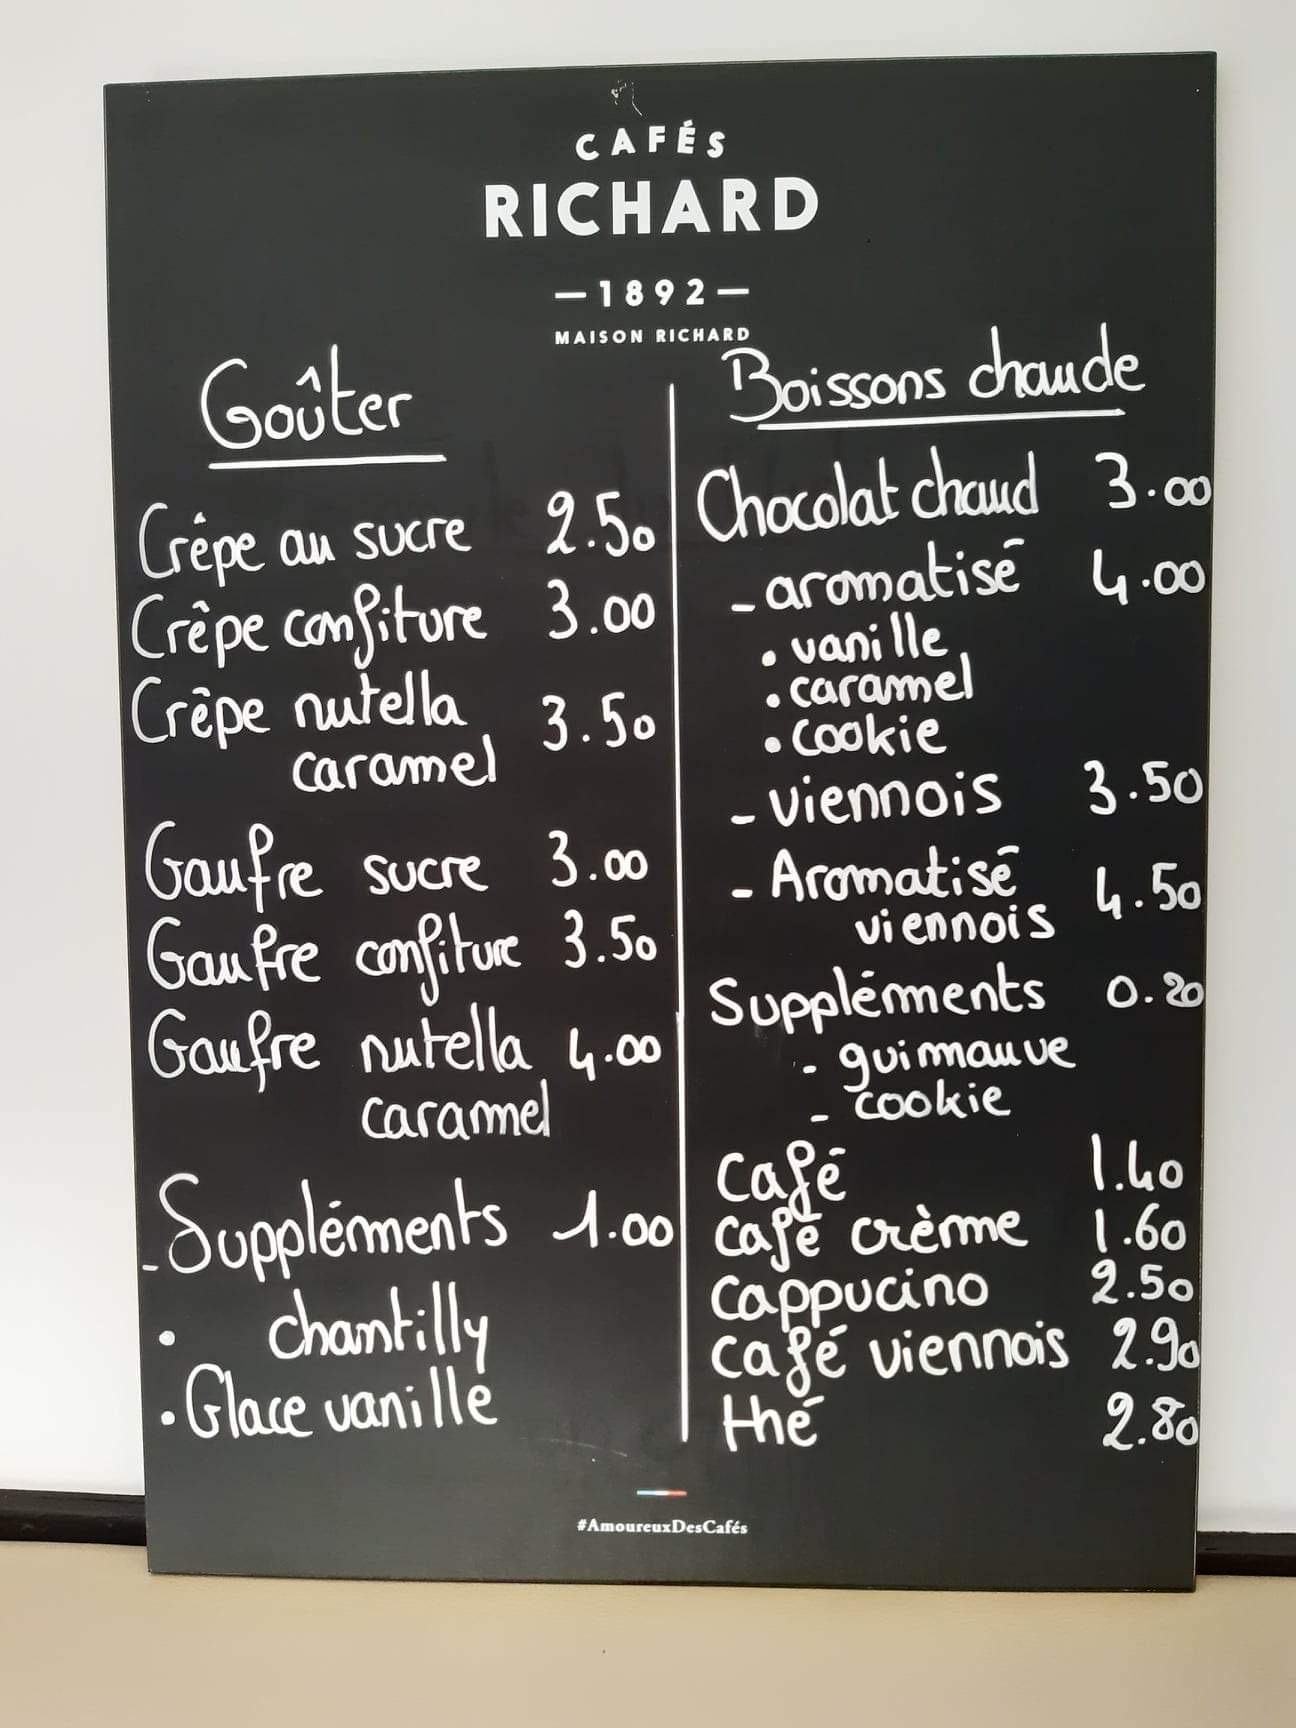 CAFÉS
RICHARD
— 1892 —
MAISON RICHARD
Goûter
Crêpe au sucre 2.50
Crêpe confiture 3.00
Crêpe nutella 3.50
caramel
Gaufre sucre 3.00
Gaufre confiture 3.50
Gaufre nutella 4.00
caramel
- Suppléments 1.00
• chantilly
• Glace vanille
Boissons chaude
Chocolat chaud 3.00
- aromatisé 4.00
• vanille
• caramel
• cookie
- viennois 3.50
- Aromatisé 4.50
viennois
Suppléments 0.20
- guimauve
- cookie
Café 1.40
Café crème 1.60
Cappucino 2.50
Café viennois 2.90
thé 2.80
#AmoureuxDesCafés